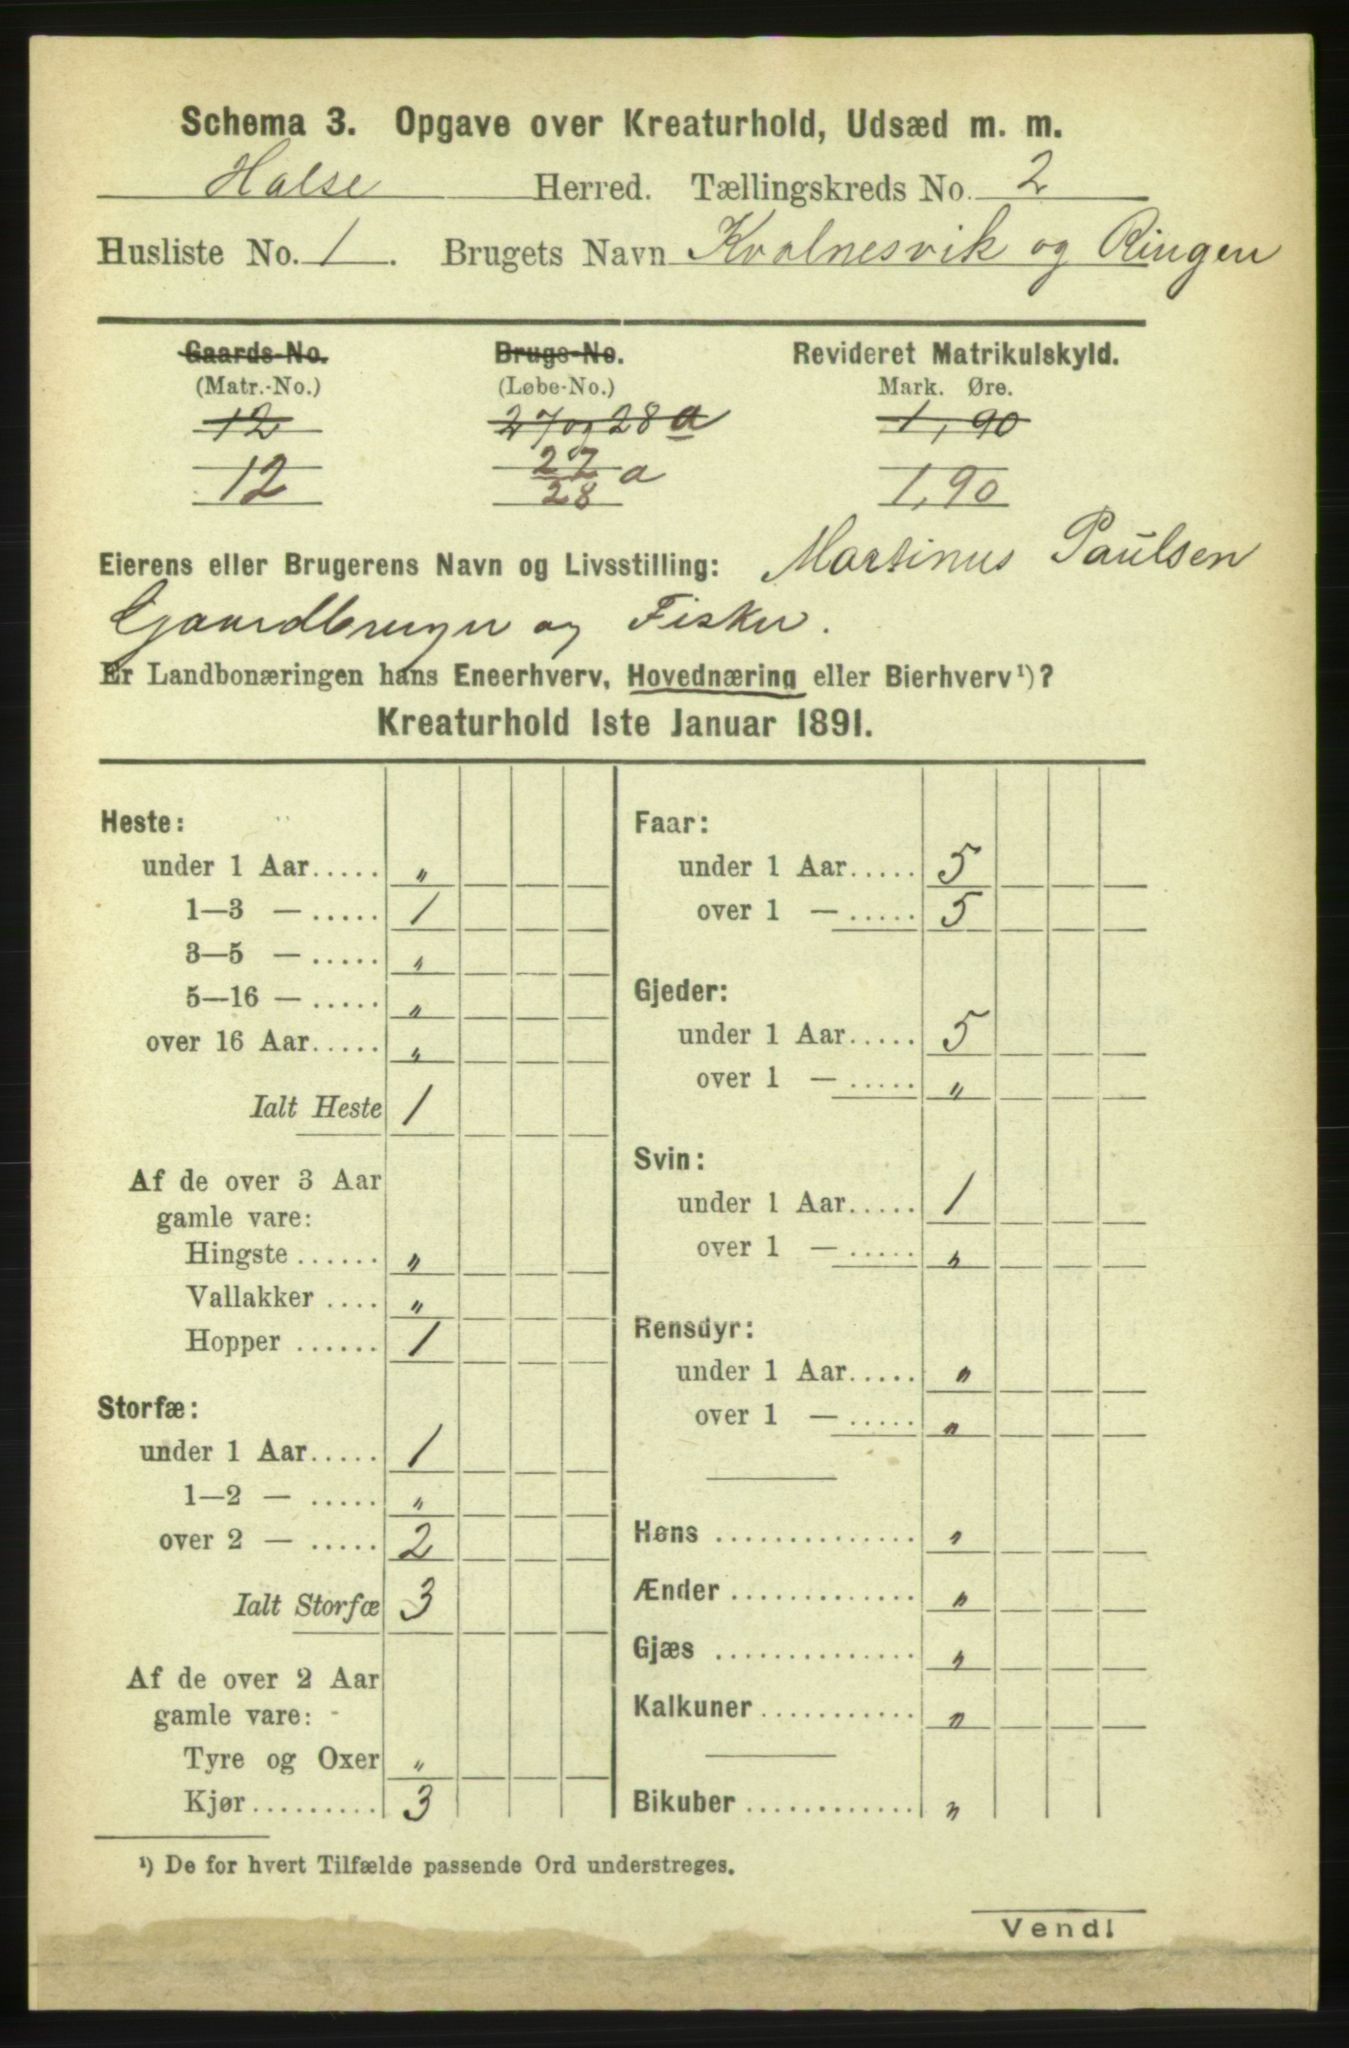 Schema 3. Opgave over Kreaturhold, Udsæd m. m.
Halse Herred. Tællingskreds No. 2
Husliste No. 1. Brugets Navn Kvalnesvik og Ringen
Gaards-No. Brugs-No. Revideret Matrikulskyld.
(Matr.-No.) (Løbe-No.) Mark. Øre.
12 27 og 28 a 1,90
12 27/28 a 1,90
Eierens eller Brugerens Navn og Livsstilling: Martinus Paulsen
Gaardbruger og Fisker.
Er Landbonæringen hans Eneerhverv, Hovednæring eller Bierhverv¹)?
Kreaturhold 1ste Januar 1891.
Heste:
under 1 Aar..... "
1—3 — ..... 1
3—5 — ..... "
5—16 — ..... "
over 16 Aar..... "
Ialt Heste 1
Af de over 3 Aar
gamle vare:
Hingste ...... "
Vallakker .... "
Hopper ...... 1
Storfæ:
under 1 Aar..... 1
1—2 — ..... "
over 2 — ..... 2
Ialt Storfæ 3
Af de over 2 Aar
gamle vare:
Tyre og Oxer "
Kjør......... 3
Faar:
under 1 Aar..... 5
over 1 — ..... 5
Gjeder:
under 1 Aar..... 5
over 1 — ..... "
Svin:
under 1 Aar..... 1
over 1 — ..... "
Rensdyr:
under 1 Aar..... "
over 1 — ..... "
Høns .............. "
Ænder ............. "
Gjæs .............. "
Kalkuner ............ "
Bikuber ............. "
¹) De for hvert Tilfælde passende Ord understreges.
Vend!